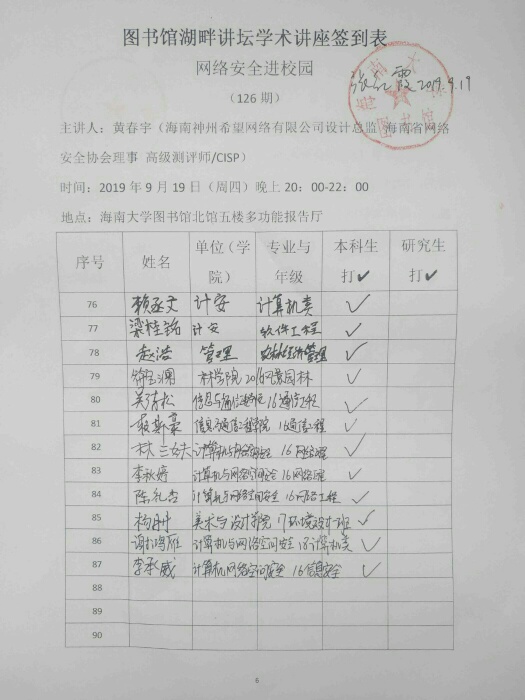 图书馆湖畔讲坛学术讲座签到表
网络安全进校园
（126 期）
张红霞 2019.9.19
海南大学
图书馆
主讲人：黄春宇（海南神州希望网络有限公司设计总监 海南省网络
安全协会理事 高级测评师/CISP）
时间：2019 年 9 月 19 日（周四）晚上 20：00-22：00
地点：海南大学图书馆北馆五楼多功能报告厅
序号 姓名 单位（学院） 专业与年级 本科生打✔ 研究生打✔
76 赖丞文 计安 计算机类 ✓
77 梁桂铭 计安 软件工程 ✓
78 赵浩 管理 农林经济管理 ✓
79 林学院 2016风景园林 ✓
80 吴清松 信息与通信工程学院 16通信工程 ✓
81 信息与通信工程学院 16通信工程 ✓
82 林三妹 计算机与网络空间安全 16网络工程 ✓
83 李秋婷 计算机与网络空间安全 16网络工程 ✓
84 陈礼杏 计算机与网络空间安全 16网络工程 ✓
85 杨珊 美术与设计学院 17环境设计班 ✓
86 谢鸿雁 计算机与网络空间安全 18计算机类 ✓
87 李承威 计算机网络空间安全 16信息安全 ✓
88
89
90
6